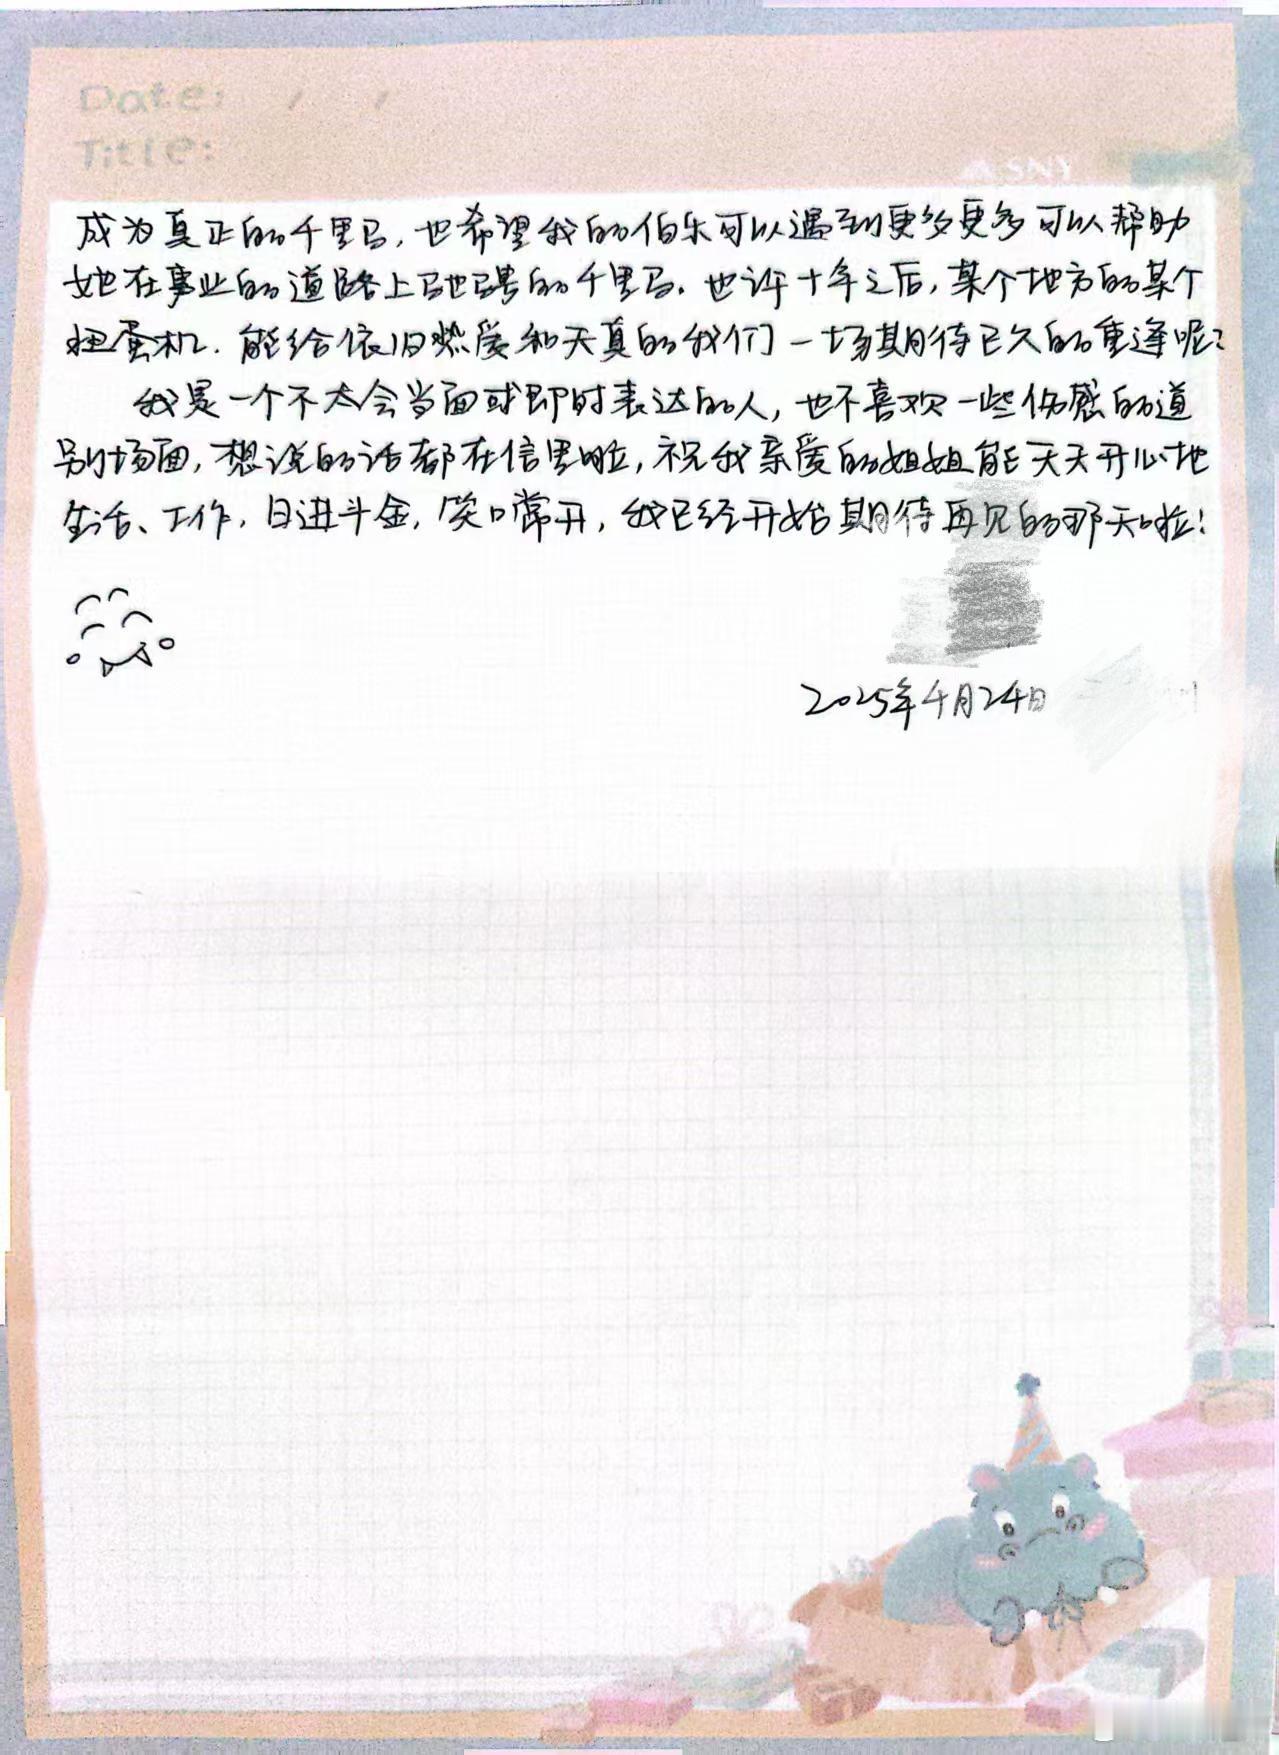 Date: / /
Title:
成为真正的千里马，也希望我的伯乐可以遇到更多更多可以帮助
她在事业的道路上驰骋的千里马。也许十年之后，某个地方的某个
扭蛋机．能给依旧热爱和天真的我们一场期待已久的重逢呢？
我是一个不太会当面或即时表达的人，也不喜欢一些伤感的道
别场面，想说的话都在信里啦，祝我亲爱的姐姐能天天开心地
生活、工作，日进斗金，笑口常开，我已经开始期待再见的那天啦！
2025年4月24日